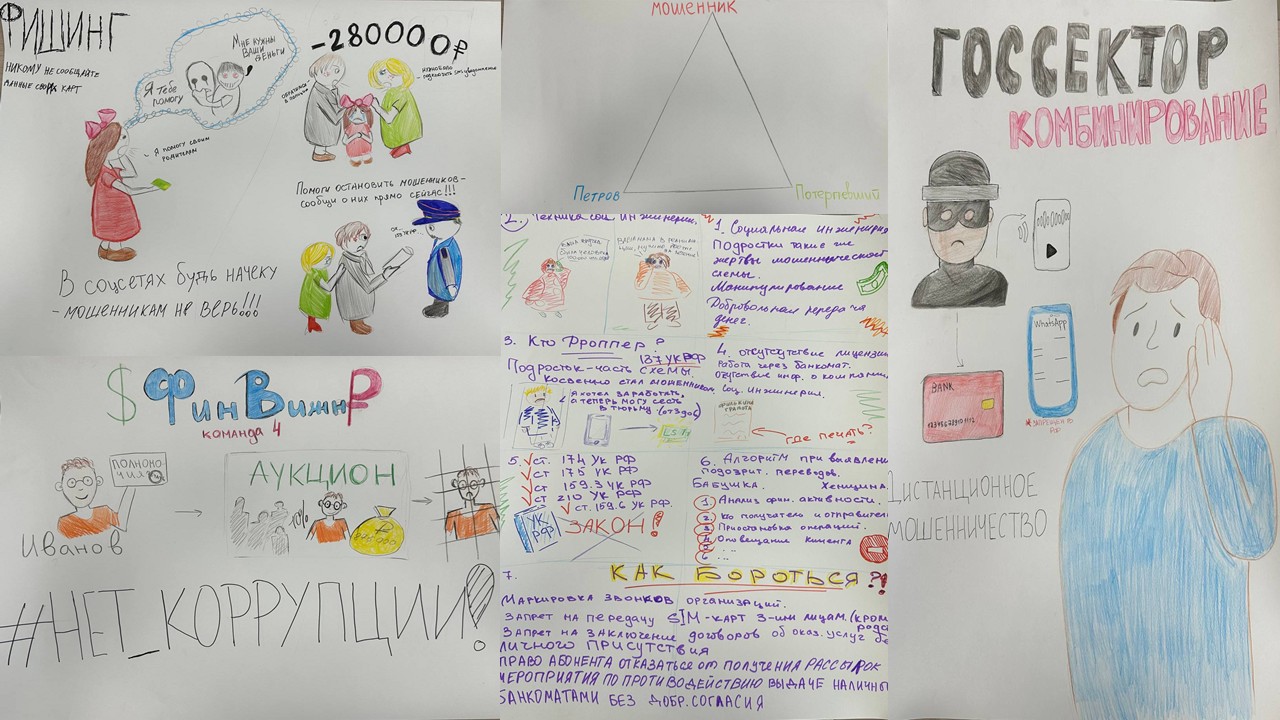 ФИШИНГ
НИКОМУ НЕ СООБЩАЙТЕ
ДАННЫЕ СВОИХ КАРТ
Я ТЕБЕ
ПОМОГУ
МНЕ НУЖНЫ
ВАШИ
ДЕНЬГИ
Я ПОМОГУ СВОИМ
РОДИТЕЛЯМ
-280000₽
ПОМОГИ ОСТАНОВИТЬ МОШЕННИКОВ-
СООБЩИ О НИХ ПРЯМО СЕЙЧАС!!!
В СОЦСЕТЯХ БУДЬ НАЧЕКУ
- МОШЕННИКАМ НЕ ВЕРЬ!!!
$ ФИНВИЖН₽
КОМАНДА 4
ПОЛНОМО
ЧИЯ
ИВАНОВ
АУКЦИОН
10%
#НЕТ_КОРРУПЦИИ!
МОШЕННИК
Петров
Потерпевший
2. Техника соц инженерии.
1. Социальная инженерия
Подростки такие же
жертвы мошеннической
схемы.
Манипулирование
Добровольная передача
денег.
3. Кто Дроппер?
187 УК РФ
Подросток-часть схемы.
косвенно стал мошенником
Я хотел заработать,
а теперь могу сесть
в тюрьму
4. отсутствие лицензии
Работа через банкомат.
Отсутствие инф. о компании
Соц. инженерия.
где печать?
5. ст. 174 УК РФ
ст 175 УК РФ
ст 159.3 УК РФ
ст 210 УК РФ
ст. 159.6 УК РФ
УК
РФ
ЗАКОН!
6. Алгоритм при выявлени
подозрит. переводов.
Бабушка. женщина.
1 Анализ фин. активности.
2. Кто получатель и отправител
3 Приостановка операций.
4 Оповещение клиента
5 ...
7. КАК БОРОТЬСЯ?!
Маркировка звонков организаций.
Запрет на передачу SIM-карт 3-им лицам. (кром
родс
Запрет на заключение договоров об оказ. услуг бе
личного присутствия
Право абонента отказаться от получения рассылок
мероприятия по противодействию выдаче наличны
банкоматами без добр. согласия
ГОССЕКТОР
КОМБИНИРОВАНИЕ
WhatsApp
BANK
ДИСТАНЦИОННОЕ
МОШЕННИЧЕСТВО